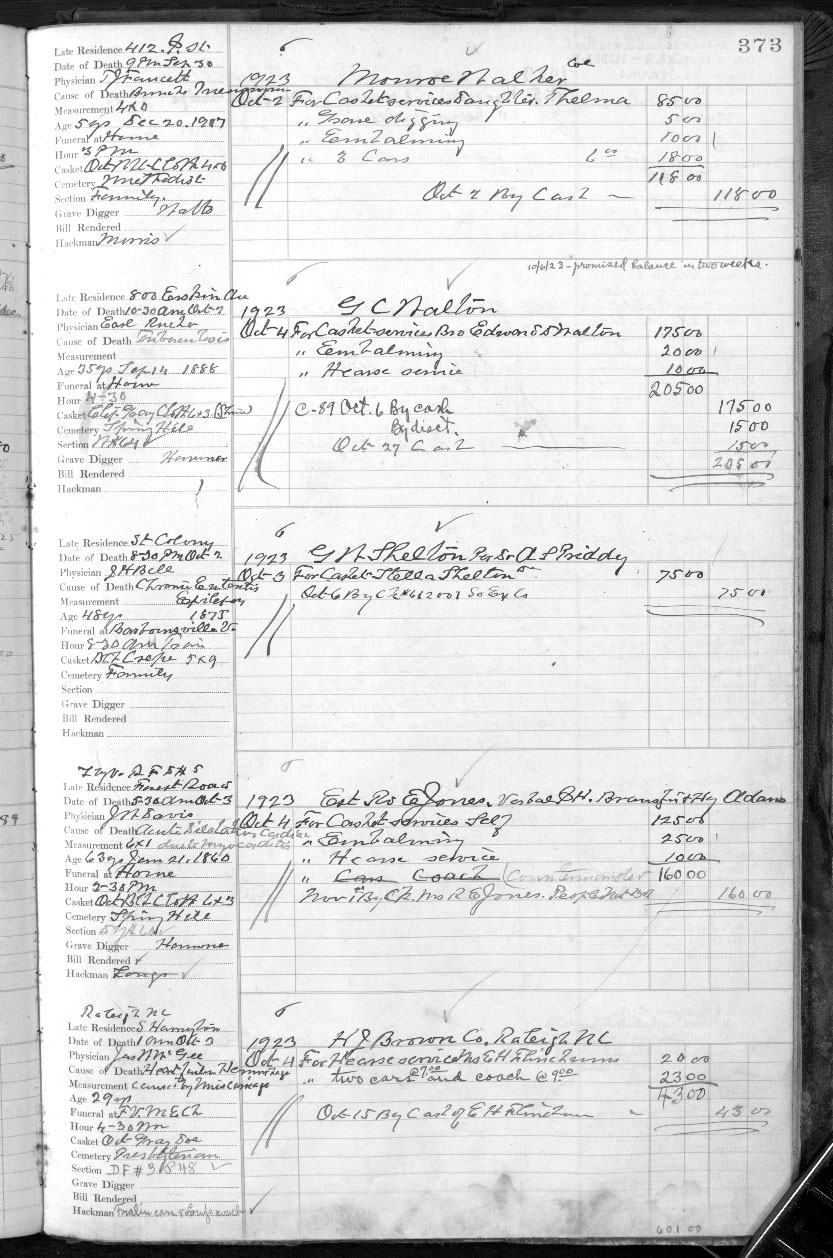 373
Late Residence 412. J. St.
Date of Death 9 Pm Sep 30
Physician Fawcett
Cause of Death
Measurement 4x0
Age 5 ys Dec 20. 1917
Funeral at Home
Hour 3 Pm
Casket Oct Cloth 4x0
Cemetery Methodist
Section Family.
Grave Digger
Bill Rendered
Hackman Morris
1923 Monroe Walker Col
Oct-2 For Casket-services Daughter. Thelma 85 00
" Grave digging 5 00
" Embalming 10 00
" 3 Cars 6 00 18 00
118 00
Oct 2 By Cash — 118 00
10/6/23 - promised balance in two weeks.
Late Residence 800 Ave
Date of Death 10-30 am Oct-2
Physician
Cause of Death Tuberculosis
Measurement
Age 35 ys Sep 14 1888
Funeral at Home
Hour 4-30
Casket Gray Cloth 6x3
Cemetery Spring Hill
Section
Grave Digger
Bill Rendered
Hackman
1923 G C Walton
Oct-4 For Casket-services Bro Edward S Walton 175 00
" Embalming 20 00
" Hearse service 10 00
205 00
C-89 Oct. 6 By cash 175 00
By disct. 15 00
Oct 27 Cash 15 00
205 00
Late Residence St Colony
Date of Death 8-30 Pm Oct-2
Physician J H Bell
Cause of Death Chronic
Measurement Epilepsy
Age 48 ys 1875
Funeral at Barboursville Va
Hour 8-30 am Train
Casket Blk Crepe 5x9
Cemetery Family
Section
Grave Digger
Bill Rendered
Hackman
1923 G W Shelton Per Dr A S Priddy
Oct-3 For Casket-Stella Shelton 75 00
Oct 6 By Ck #612001 So Ex Co 75 00
Late Residence Forest Road
Date of Death 5-30 am Oct-3
Physician J W Davis
Cause of Death Acute Dilatation Cardiac
Measurement 6x1 due to Myocarditis
Age 63 ys Jan 21, 1860
Funeral at Home
Hour 2-30 Pm
Casket Oct Blk Cloth 6x3
Cemetery Spring Hill
Section
Grave Digger
Bill Rendered
Hackman Longs
1923 Est R E Jones. Verbal Adams
Oct 4 For Casket services Self 125 00
" Embalming 25 00
" Hearse service 10 00
" Cars Coach (Countermanded 160 00
Nov 1st By Ck. Mrs R E Jones. Peoples Nat Bk 160 00
Raleigh NC
Late Residence
Date of Death Oct-3
Physician Jas
Cause of Death
Measurement caused by Miscarriage
Age 29 ys
Funeral at
Hour 4-30 Pm
Casket Oct Gray
Cemetery Presbyterian
Section DF #3 P 48
Grave Digger
Bill Rendered
Hackman
1923 H J Brown Co. Raleigh NC
Oct-4 For Hearse service Mrs E H Flinchum 20 00
" two cars @ 7.00 and coach @ 9.00 23 00
43 00
Oct-15 By Cash of E H Flinchum 43 00
601 00